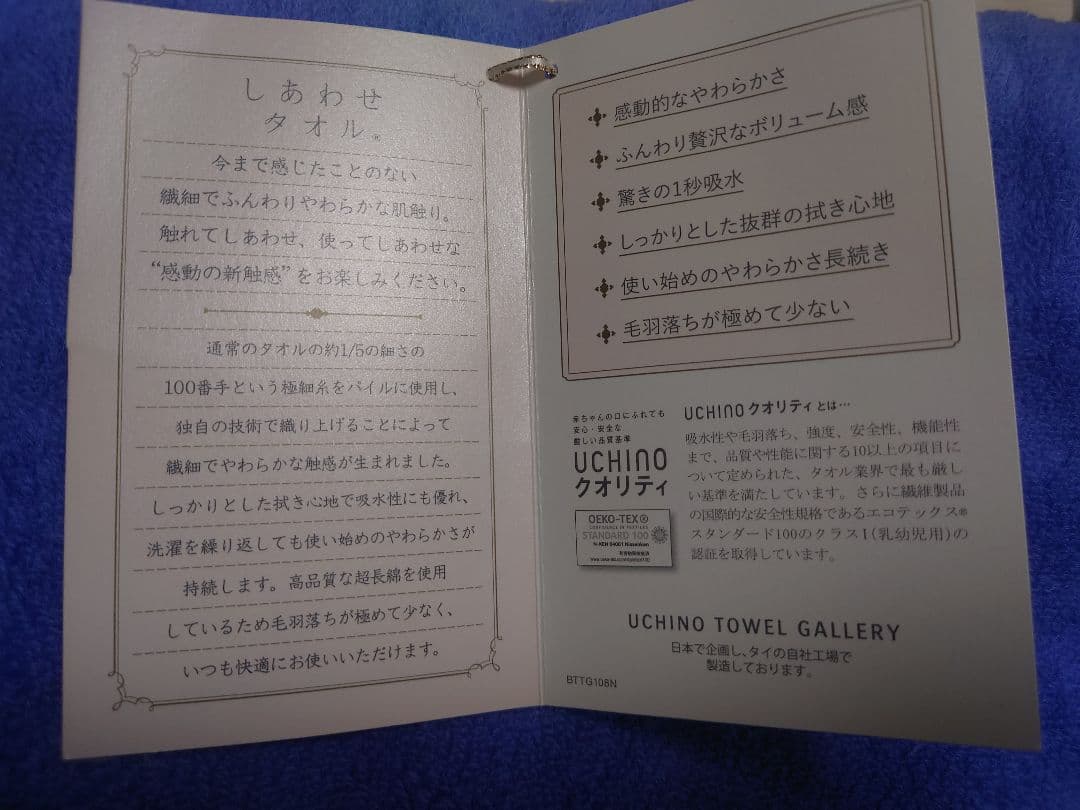 しあわせ
タオル®
今まで感じたことのない
繊細でふんわりやわらかな肌触り。
触れてしあわせ、使ってしあわせな
“感動の新触感”をお楽しみください。
通常のタオルの約1/5の細さの
100番手という極細糸をパイルに使用し、
独自の技術で織り上げることによって
繊細でやわらかな触感が生まれました。
しっかりとした拭き心地で吸水性にも優れ、
洗濯を繰り返しても使い始めのやわらかさが
持続します。高品質な超長綿を使用
しているため毛羽落ちが極めて少なく、
いつも快適にお使いいただけます。
感動的なやわらかさ
ふんわり贅沢なボリューム感
驚きの1秒吸水
しっかりとした抜群の拭き心地
使い始めのやわらかさ長続き
毛羽落ちが極めて少ない
赤ちゃんの口にふれても
安心・安全な
厳しい品質基準
UCHINO
クオリティ
OEKO-TEX®
CONFIDENCE IN TEXTILES
STANDARD 100
UCHINOクオリティとは…
吸水性や毛羽落ち、強度、安全性、機能性
まで、品質や性能に関する10以上の項目に
ついて定められた、タオル業界で最も厳し
い基準を満たしています。さらに繊維製品
の国際的な安全性規格であるエコテックス®
スタンダード100のクラスI(乳幼児用)の
認証を取得しています。
UCHINO TOWEL GALLERY
日本で企画し、タイの自社工場で
製造しております。
BTTG108N